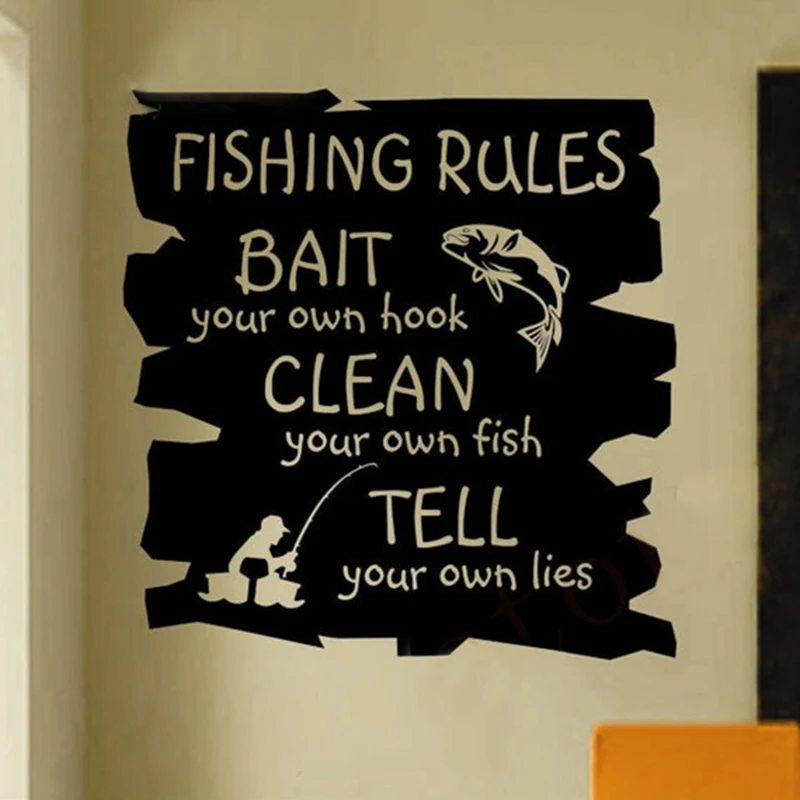 FISHING RULES
BAIT
your own hook
CLEAN
your own fish
TELL
your own lies